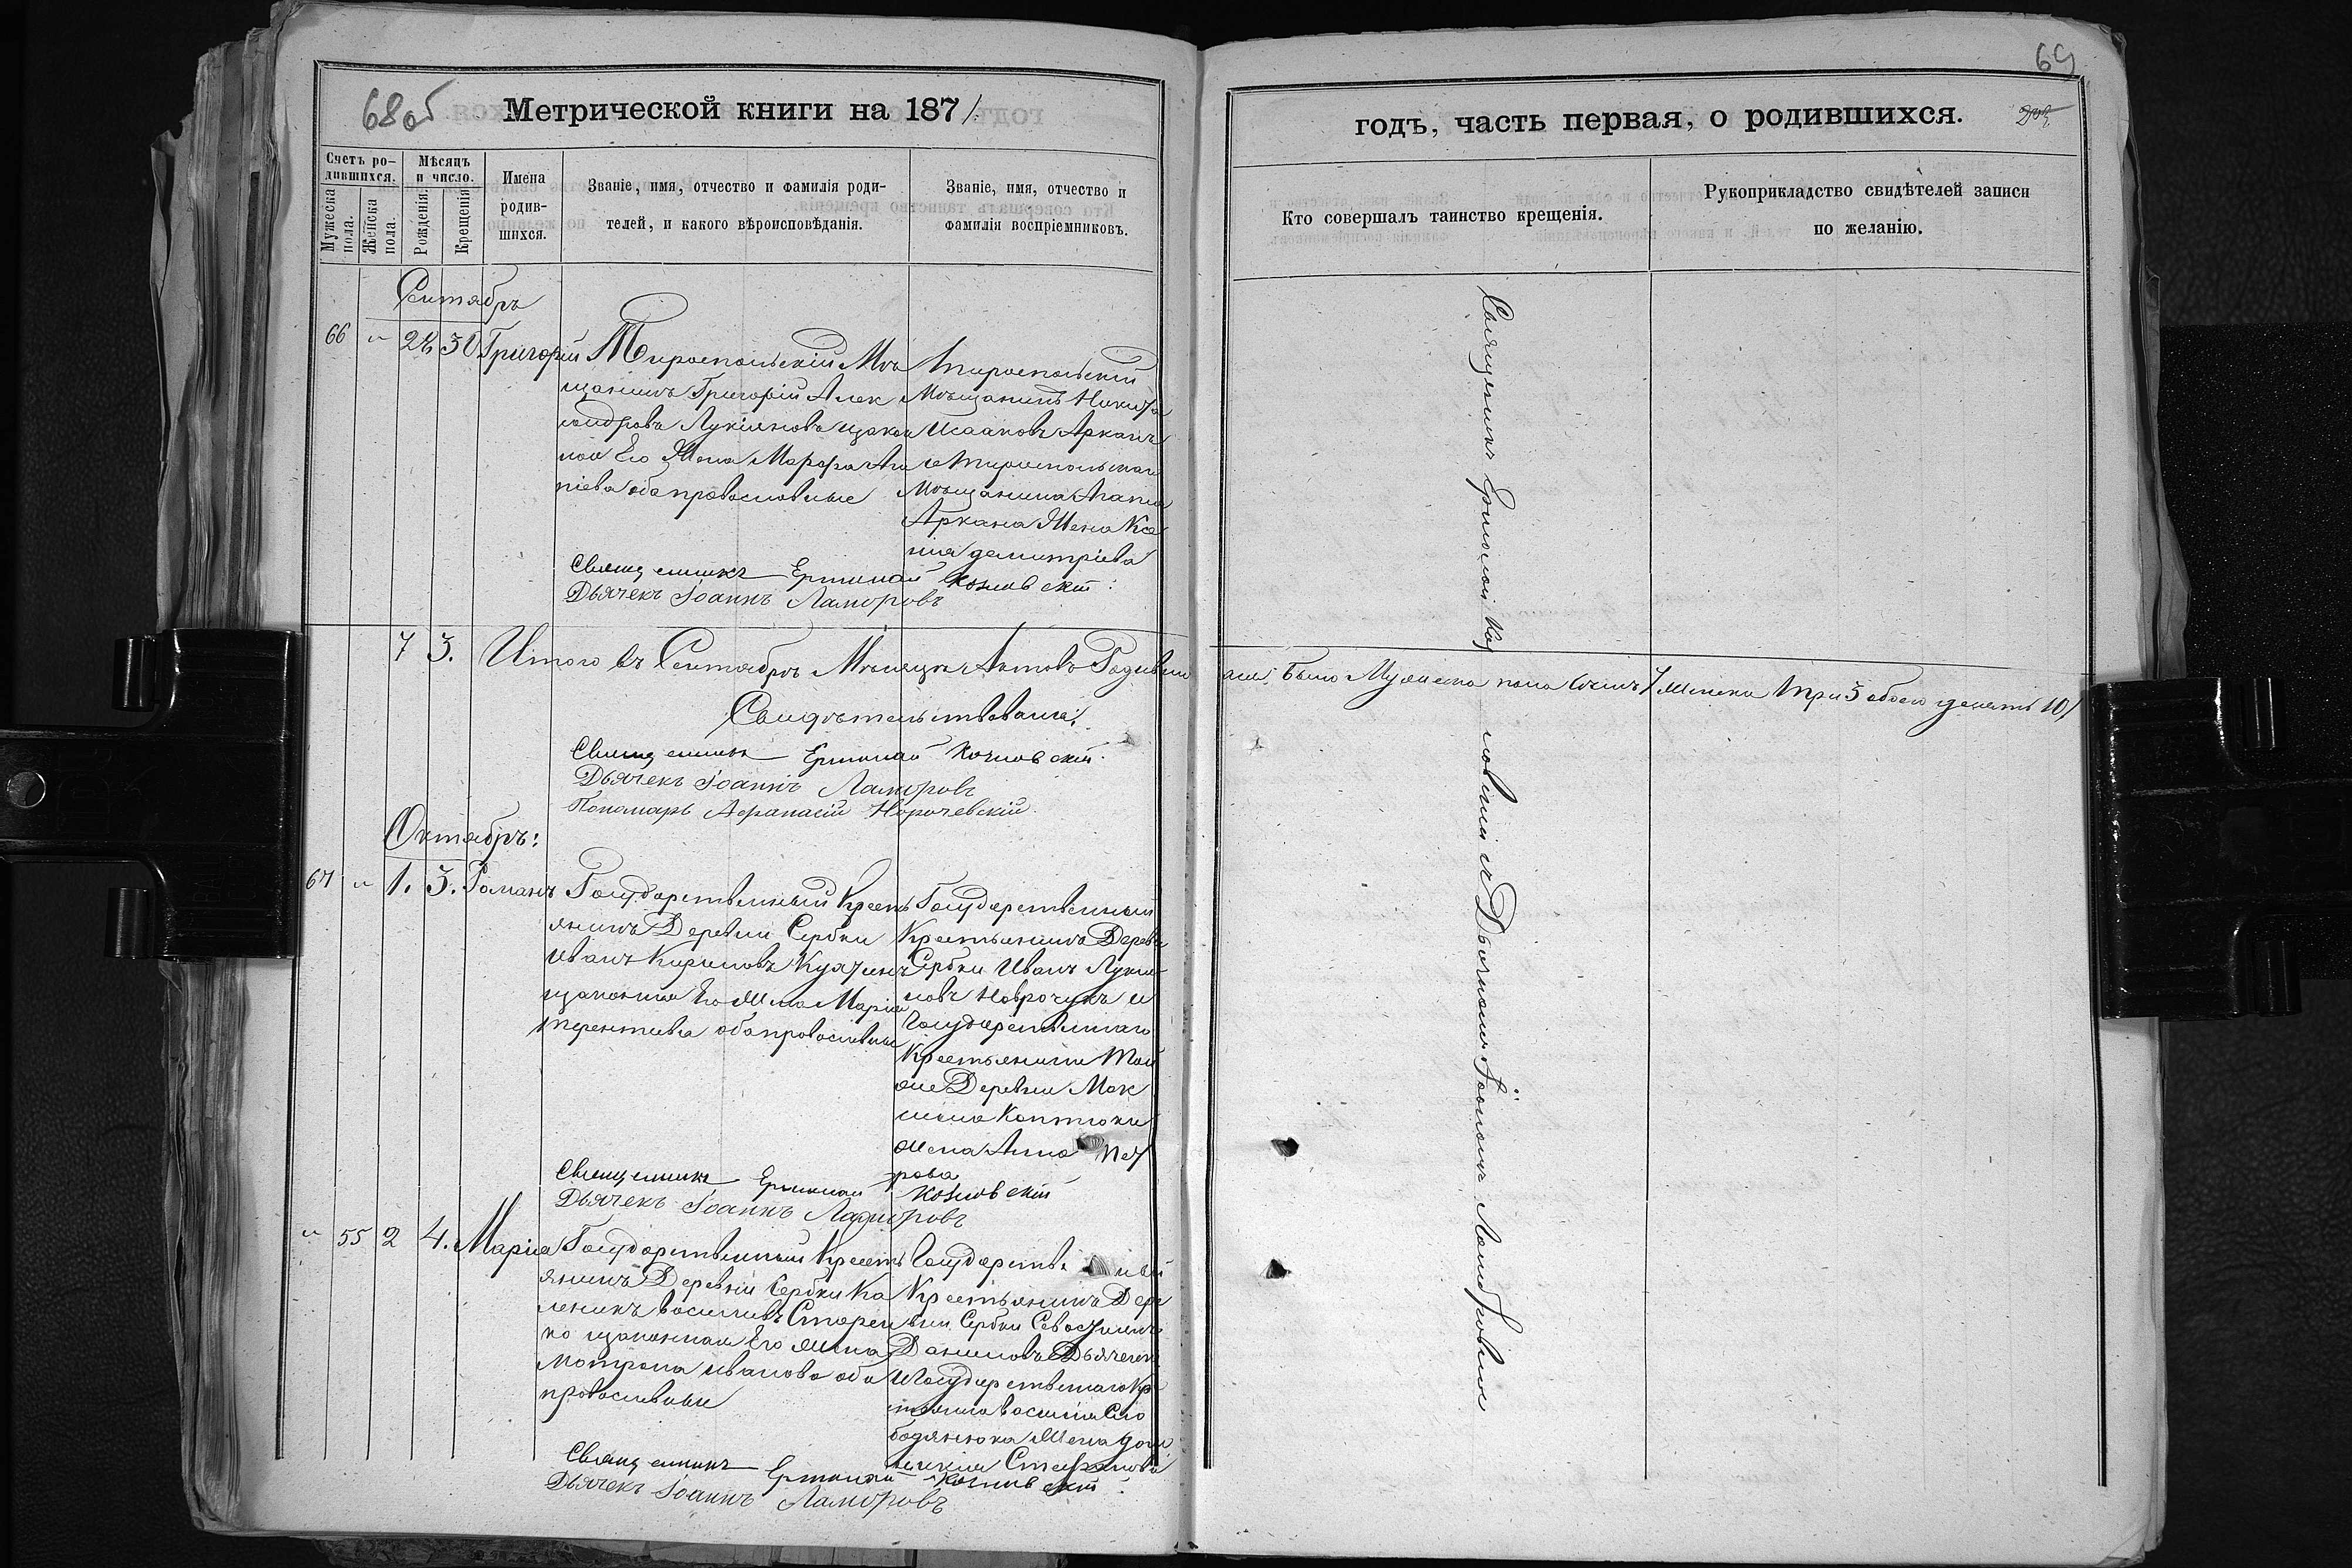 68 об
Метрической книги на 1871
Счетъ ро-
дившихся.
Мужеска пола.
Женска пола.
Мѣсяцъ
и число.
Рожденія.
Крещенія.
Имена
родив-
шихся.
Званіе, имя, отчество и фамилія роди-
телей, и какого вѣроисповѣданія.
Званіе, имя, отчество и
фамилія воспріемниковъ.
Сентябрь
66 " 28 30 Григорій
Тироспольскій Мѣ
щанинъ Григорій Алек
сандровъ Лукіяновъ изакон
ная Его Жена Марфа
піева оба православные
Тироспольскій
Мѣщанинъ Никита
Исааковъ Арканъ
Мѣщанина
Аркана Жена Ксе
нія димитріева
Священникъ Ермолай Козловскій:
Дьячекъ Іоаннъ Ламбровъ
7 3. Итого въ Сентябрѣ Мѣсяцѣ Актовъ Родивши
Свидѣтельствовали:
Священникъ Ермолай Козловскій.
Дьячекъ Іоаннъ Ламбровъ
Пономарь Афанасій
Октябрь:
67 " 1. 3. Романъ
Государственный Кресть
янинъ Деревни Сербки
Иванъ Кириловъ
изаконная Его Жена Марія
терентиева оба православные
Государственный
Крестьянинъ Дерев
Сербки Иванъ Лукія
новъ Наврочукъ и
Государственнаго
Крестьянина Той
же Деревни Мак
сима Каптюка
жена Анна Пет
рова
Священникъ Ермолай Козловскій
Дьячекъ Іоаннъ Ламбровъ
" 55 2 4. Марія
Государственный Кресть
янинъ Деревни Сербки Ка
леникъ василіевъ
ко изаконная Его жена
Мотрона иванова оба
православные
Государстве ный
Крестьянинъ Дере
вни Сербки
Даниловъ Дьяченко
и Государственнаго Кр
василія Сло
бодянюка Жена
Стефанова
Священникъ Ермолай Козловскій:
Дьячекъ Іоаннъ Ламбровъ
69
годъ, часть первая, о родившихся.
Кто совершалъ таинство крещенія.
Рукоприкладство свидѣтелей записи
по желанію.
Священникъ Ермолай Козловскій и Дьячкомъ Іоаномъ Ламбровымъ
было Мужеска пола семь 7 женска три 3 обоего десять 10/